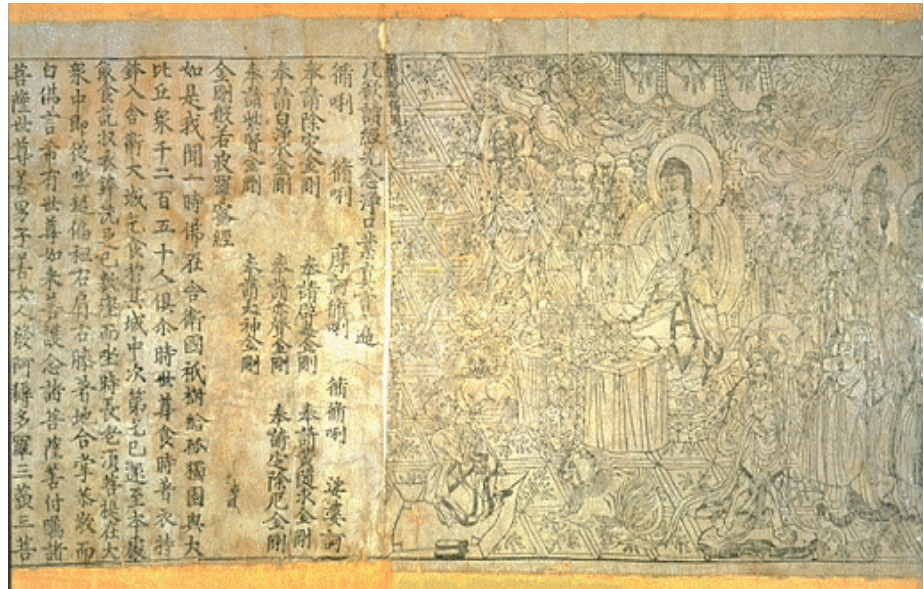 凡欲讀經先念淨口業真言一遍
脩唎 脩唎 摩訶脩唎 脩脩唎 娑婆訶
奉請除灾金剛 奉請辟毒金剛 奉請黄随求金剛
奉請白淨水金剛 奉請赤聲金剛 奉請定除厄金剛
奉請紫賢金剛 奉請大神金剛
金剛般若波羅蜜經
如是我聞一時佛在舍衛國祇樹給孤獨園與大
比丘衆千二百五十人俱尒時世尊食時著衣持
鉢入舍衛大城乞食於其城中次第乞已還至本處
飯食訖收衣鉢洗足已敷座而坐時長老須菩提在大
衆中即從坐起偏袒右肩右膝著地合掌恭敬而
白佛言希有世尊如來善護念諸菩薩善付囑諸
菩薩世尊善男子善女人發阿耨多羅三藐三菩